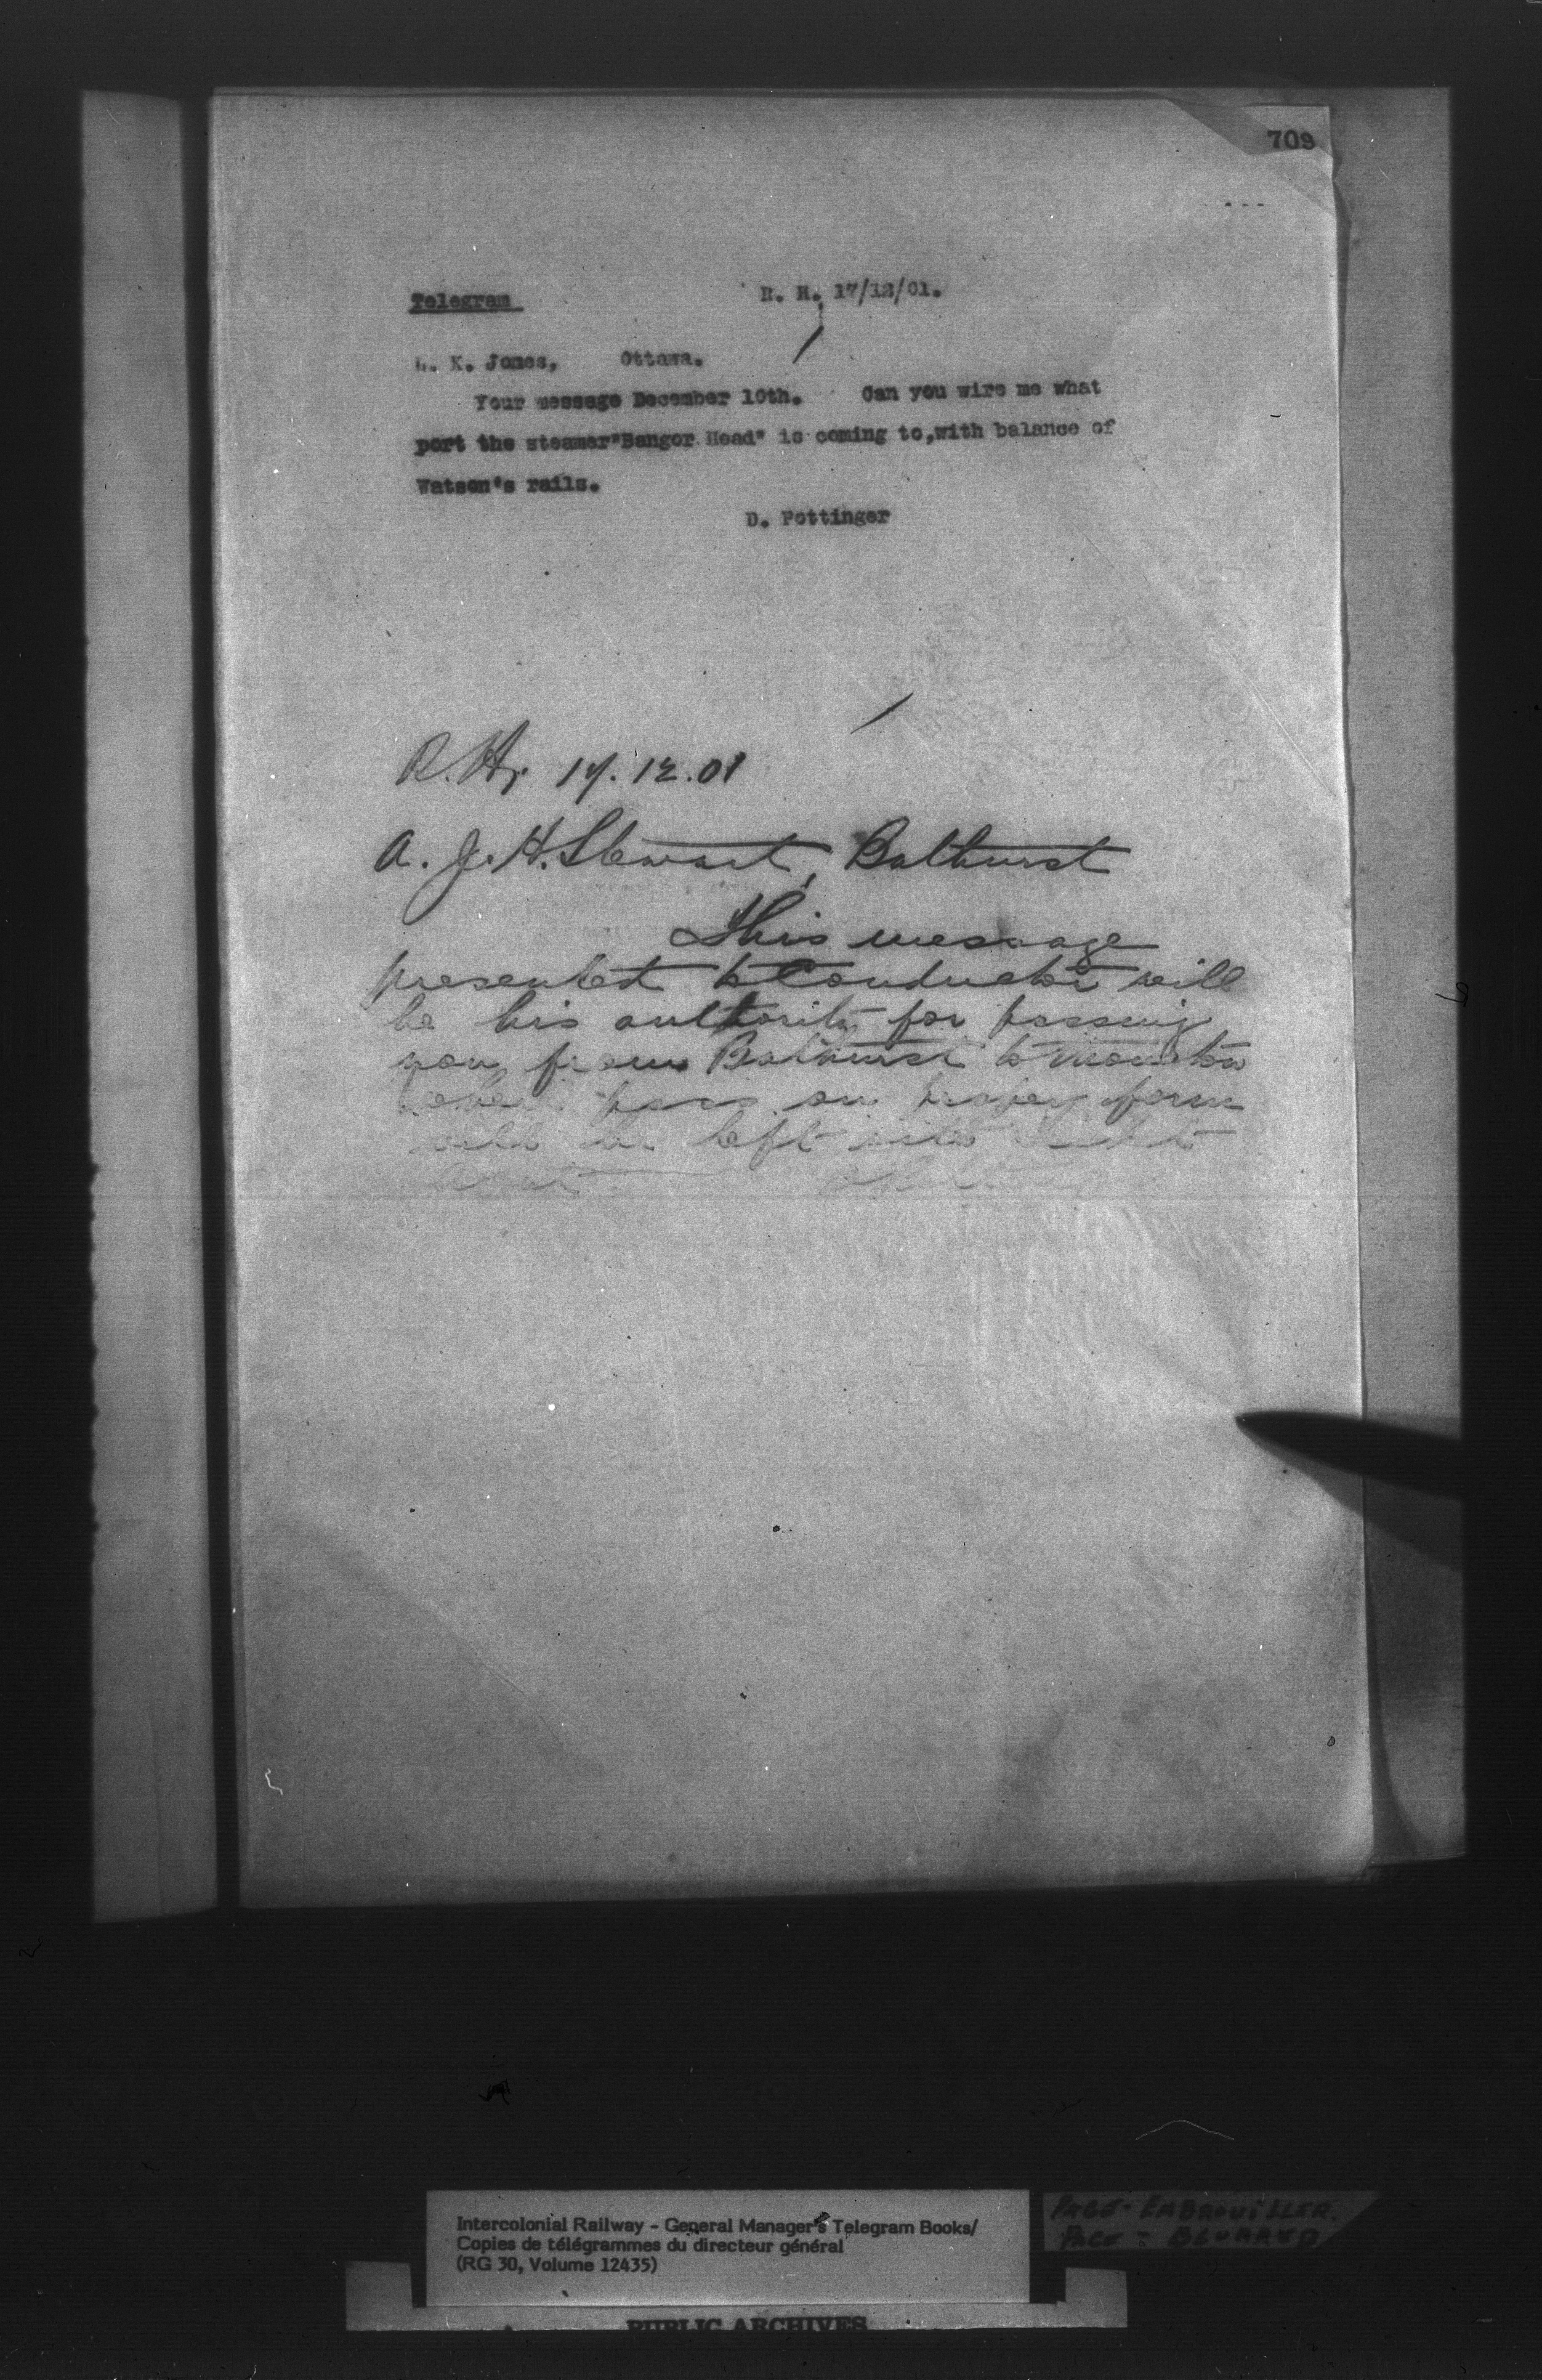 709
Telegram R. H. 17/12/01.
L. K. Jones, Ottawa.
Your message December 10th. Can you wire me what
port the steamer "Bangor Head" is coming to, with balance of
Watson's rails.
D. Pottinger
R. H. 17.12.01
A. J. H. Stewart, Bathurst
This message
presented to Conductor will
be his authority for passing
you from Bathurst to Moncton
pass on proper form
will be left with
Intercolonial Railway - General Manager's Telegram Books/
Copies de télégrammes du directeur général
(RG 30, Volume 12435)
PAGE - EMBROUILLER.
PAGE - BLURRED
PUBLIC ARCHIVES